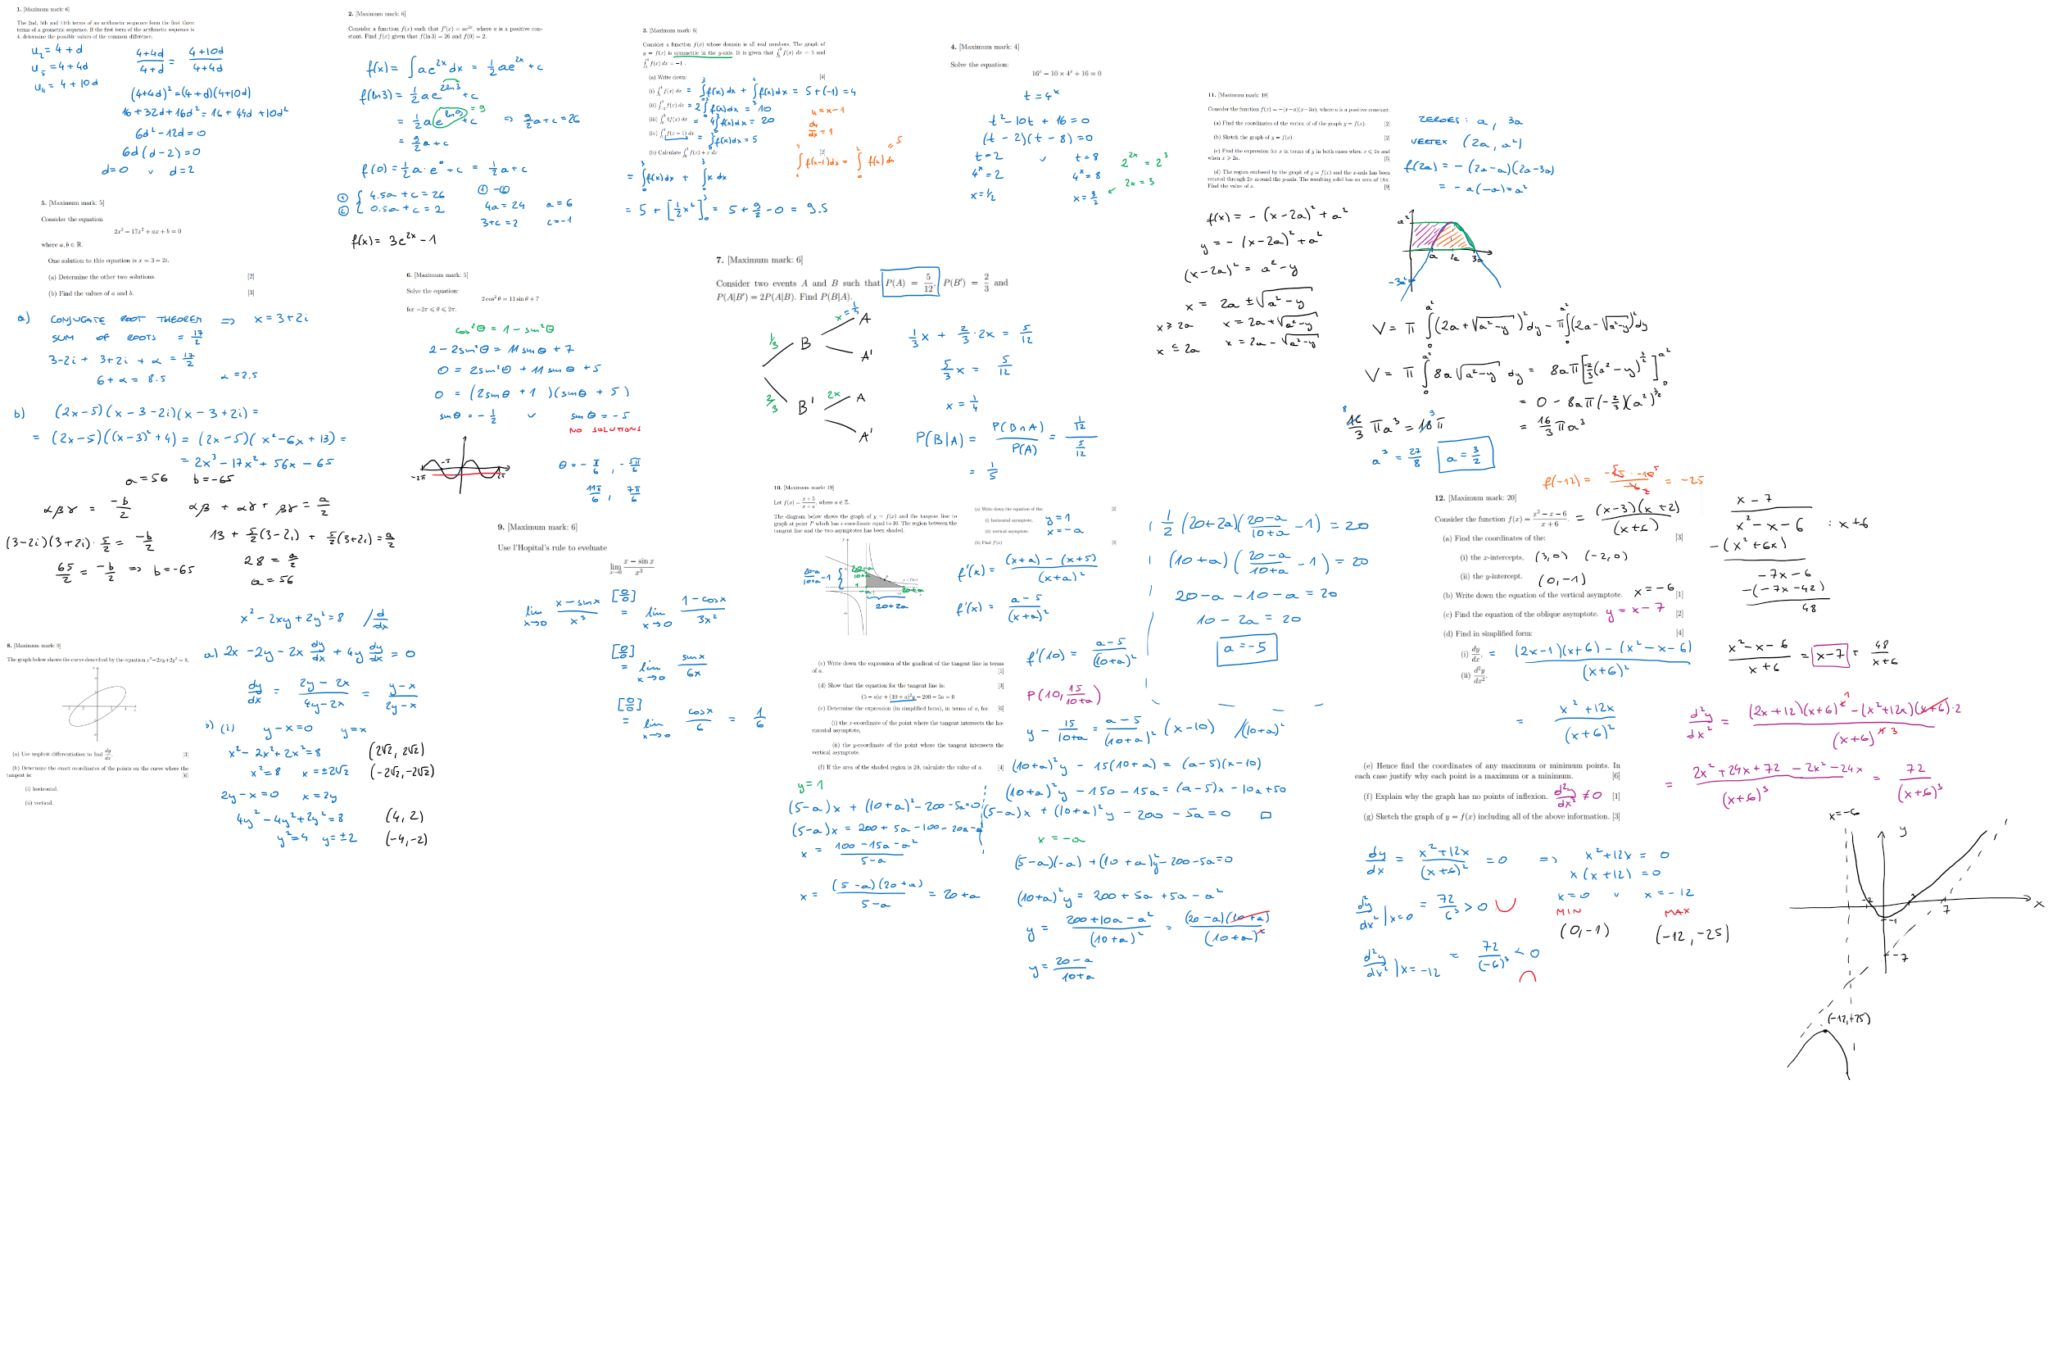 1. [Maximum mark: 6]
The 2nd, 5th and 11th terms of an arithmetic sequence form the first three
terms of a geometric sequence. If the first term of the arithmetic sequence is
4, determine the possible values of the common difference.
u₂ = 4 + d
u₅ = 4 + 4d
u₁₁ = 4 + 10d
(4+4d)/(4+d) = (4+10d)/(4+4d)
(4+4d)² = (4+d)(4+10d)
16 + 32d + 16d² = 16 + 44d + 10d²
6d² - 12d = 0
6d(d-2) = 0
d=0 v d=2
2. [Maximum mark: 6]
Consider a function f(x) such that f'(x) = ae²ˣ, where a is a positive con-
stant. Find f(x) given that f(ln 3) = 26 and f(0) = 2.
f(x) = ∫ ae²ˣ dx = ½ae²ˣ + c
f(ln3) = ½ a e^(2ln3) + c
= ½ a e^(ln9) + c = 9
⇒ 9/2 a + c = 26
= 9/2 a + c
f(0) = ½ a·e⁰ + c = ½a + c
① 4.5a + c = 26
② 0.5a + c = 2
① - ②
4a = 24 a = 6
3 + c = 2 c = -1
f(x) = 3e²ˣ - 1
3. [Maximum mark: 6]
Consider a function f(x) whose domain is all real numbers. The graph of
y = f(x) is symmetric in the y-axis. It is given that
(a) Write down: [4]
= ∫f(x)dx + ∫f(x)dx = 5 + (-1) = 4
= 2∫f(x)dx = 10
= 4∫f(x)dx = 20
= ∫f(x)dx = 5
u = x - 1
du/dx = 1
∫f(x-1)dx = ∫f(u)du 5
(b) Calculate ∫ f(x) + x dx [2]
= ∫₀³ f(x)dx + ∫₀³ x dx
= 5 + [½x²]₀³ = 5 + 9/2 - 0 = 9.5
4. [Maximum mark: 4]
Solve the equation:
16ˣ − 10 × 4ˣ + 16 = 0
t = 4ˣ
t² - 10t + 16 = 0
(t - 2)(t - 8) = 0
t = 2 v t = 8
4ˣ = 2 4ˣ = 8
x = 1/2 x = 3/2
2²ˣ = 2³
2x = 3
5. [Maximum mark: 5]
Consider the equation
2x³ − 17x² + ax + b = 0
where a, b ∈ ℝ.
One solution to this equation is x = 3 − 2i.
(a) Determine the other two solutions. [2]
(b) Find the values of a and b. [3]
a) CONJUGATE ROOT THEOREM ⇒ x = 3 + 2i
SUM OF ROOTS = 17/2
3 - 2i + 3 + 2i + α = 17/2
6 + α = 8.5 α = 2.5
b) (2x-5)(x-3-2i)(x-3+2i) =
= (2x-5)((x-3)² + 4) = (2x-5)(x² - 6x + 13) =
= 2x³ - 17x² + 56x - 65
a = 56 b = -65
αβγ = -b/2 αβ + αγ + βγ = a/2
(3-2i)(3+2i)·5/2 = -b/2
13 + 5/2(3-2i) + 5/2(3+2i) = a/2
65/2 = -b/2 ⇒ b = -65
28 = a/2
a = 56
6. [Maximum mark: 5]
Solve the equation:
2 cos² θ = 11 sin θ + 7
for −2π ⩽ θ ⩽ 2π.
cos²θ = 1 - sin²θ
2 - 2sin²θ = 11sinθ + 7
0 = 2sin²θ + 11sinθ + 5
0 = (2sinθ + 1)(sinθ + 5)
sinθ = -½ v sinθ = -5
NO SOLUTIONS
-2π -π 2π
θ = -π/6, -5π/6
11π/6, 7π/6
7. [Maximum mark: 6]
Consider two events A and B such that P(A) = 5/12, P(B′) = 2/3 and
P(A|B′) = 2P(A|B). Find P(B|A).
1/3 B x = 1/4 A
A'
2/3 B' 2x A
A'
1/3 x + 2/3·2x = 5/12
5/3 x = 5/12
x = 1/4
P(B|A) = P(B∩A)/P(A) = (1/12)/(5/12)
= 1/5
8. [Maximum mark: 9]
The graph below shows the curve described by the equation x²−2xy+2y² = 8.
(a) Use implicit differentiation to find dy/dx. [3]
(b) Determine the exact coordinates of the points on the curve where the
tangent is: [6]
(i) horizontal.
(ii) vertical.
x² - 2xy + 2y² = 8 / d/dx
a) 2x - 2y - 2x dy/dx + 4y dy/dx = 0
dy/dx = (2y-2x)/(4y-2x) = (y-x)/(2y-x)
(i) y - x = 0 y = x
x² - 2x² + 2x² = 8
x² = 8 x = ±2√2
(2√2, 2√2)
(-2√2, -2√2)
2y - x = 0 x = 2y
4y² - 4y² + 2y² = 8
y² = 4 y = ±2
(4, 2)
(-4, -2)
9. [Maximum mark: 6]
Use l'Hopital's rule to eveluate
lim x→0 (x − sin x)/x³
lim x→0 (x - sinx)/x³ [0/0] = lim x→0 (1 - cosx)/3x²
[0/0] = lim x→0 sinx/6x
[0/0] = lim x→0 cosx/6 = 1/6
10. [Maximum mark: 19]
Let f(x) = (x+5)/(x+a), where a ∈ ℤ.
The diagram below shows the graph of y = f(x) and the tangent line to
graph at point P which has x-coordinate equal to 10. The region between the
tangent line and the two asymptotes has been shaded.
(a) Write down the equation of the [2]
(i) horizontal asymptote, y = 1
(ii) vertical asymptote. x = -a
(b) Find f'(x)
(20-a)/(10+a) - 1
20+2a
f'(x) = ((x+a) - (x+5))/(x+a)²
f'(x) = (a-5)/(x+a)²
(c) Write down the expression of the gradient of the tangent line in terms
of a. [1]
(d) Show that the equation for the tangent line is: [3]
(5 − a)x + (10 + a)²y − 200 − 5a = 0
(e) Determine the expression (in simplified form), in terms of a, for: [6]
(i) the x-coordinate of the point where the tangent intersects the ho-
rizontal asymptote,
(ii) the y-coordinate of the point where the tangent intersects the
vertical asymptote
(f) If the area of the shaded region is 20, calculate the value of a. [4]
f'(10) = (a-5)/(10+a)²
P(10, 15/(10+a))
y - 15/(10+a) = (a-5)/(10+a)² (x-10) /(10+a)²
(10+a)²y - 15(10+a) = (a-5)(x-10)
(10+a)²y - 150 - 15a = (a-5)x - 10a + 50
(5-a)x + (10+a)²y - 200 - 5a = 0 □
y = 1
(5-a)x + (10+a)² - 200 - 5a = 0
(5-a)x = 200 + 5a - 100 - 20a - a²
x = (100 - 15a - a²)/(5-a)
x = (5-a)(20+a)/(5-a) = 20 + a
x = -a
(5-a)(-a) + (10+a)²y - 200 - 5a = 0
(10+a)²y = 200 + 5a + 5a - a²
y = (200 + 10a - a²)/(10+a)² = (20-a)(10+a)/(10+a)²
y = (20-a)/(10+a)
½(20+2a)((20-a)/(10+a) - 1) = 20
(10+a)((20-a)/(10+a) - 1) = 20
20 - a - 10 - a = 20
10 - 2a = 20
a = -5
11. [Maximum mark: 18]
Consider the function f(x) = −(x−a)(x−3a), where a is a positive constant.
(a) Find the coordinates of the vertex of of the graph y = f(x). [2]
(b) Sketch the graph of y = f(x).
(c) Find the expression for x in terms of y in both cases when x ⩽ 2a and
when x ⩾ 2a. [5]
(d) The region enclosed by the graph of y = f(x) and the x-axis has been
rotated through 2π around the y-axis. The resulting solid has an area of 18π.
Find the value of a.
ZEROES: a, 3a
VERTEX (2a, a²)
f(2a) = -(2a-a)(2a-3a)
= -a(-a) = a²
f(x) = -(x-2a)² + a²
y = -(x-2a)² + a²
(x-2a)² = a² - y
x = 2a ± √(a²-y)
x ≥ 2a x = 2a + √(a²-y)
x ≤ 2a x = 2a - √(a²-y)
a²
a 2a 3a
-3a²
V = π∫₀^(a²) (2a + √(a²-y))² dy - π∫₀^(a²) (2a - √(a²-y))² dy
V = π∫₀^(a²) 8a√(a²-y) dy = 8aπ[-2/3 (a²-y)^(3/2)]₀^(a²)
= 0 - 8aπ(-2/3)(a²)^(3/2)
= 16/3 πa³
16/3 πa³ = 18π
8 3
a³ = 27/8
a = 3/2
f(-12) = = -25
12. [Maximum mark: 20]
Consider the function f(x) = (x² − x − 6)/(x + 6). = (x-3)(x+2)/(x+6)
(a) Find the coordinates of the: [3]
(i) the x-intercepts, (3, 0) (-2, 0)
(ii) the y-intercept. (0, -1)
(b) Write down the equation of the vertical asymptote. x = -6 [1]
(c) Find the equation of the oblique asymptote. y = x - 7 [2]
(d) Find in simplified form: [4]
(i) dy/dx, = ((2x-1)(x+6) - (x²-x-6))/(x+6)²
(ii) d²y/dx².
= (x²+12x)/(x+6)²
x - 7
x² - x - 6 : x+6
-(x² + 6x)
-7x - 6
-(-7x - 42)
48
(x²-x-6)/(x+6) = x-7 + 48/(x+6)
d²y/dx² = ((2x+12)(x+6)² - (x²+12x)(x+6)·2)/(x+6)⁴ 1 3
= (2x² + 24x + 72 - 2x² - 24x)/(x+6)³ = 72/(x+6)³
(e) Hence find the coordinates of any maximum or minimum points. In
each case justify why each point is a maximum or a minimum. [6]
(f) Explain why the graph has no points of inflexion. d²y/dx² ≠ 0 [1]
(g) Sketch the graph of y = f(x) including all of the above information. [3]
dy/dx = (x²+12x)/(x+6)² = 0 ⇒ x² + 12x = 0
x(x+12) = 0
x = 0 v x = -12
MIN MAX
(0, -1) (-12, -25)
d²y/dx² | x=0 = 72/6³ > 0
d²y/dx² | x=-12 = 72/(-6)³ < 0
x = -6
y
x
-2
-1
7
-7